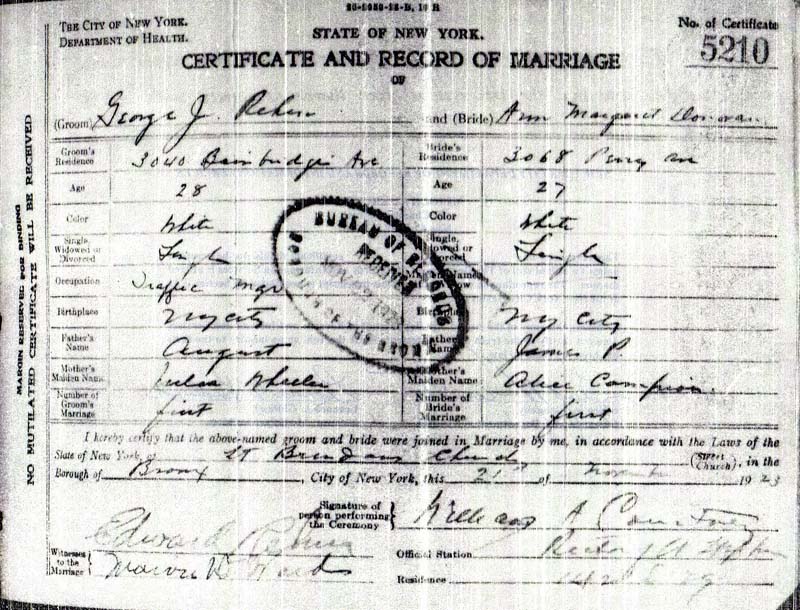 THE CITY OF NEW YORK.
DEPARTMENT OF HEALTH.
STATE OF NEW YORK.
No. of Certificate
5210
CERTIFICATE AND RECORD OF MARRIAGE
OF
(Groom) George J. and (Bride) Ann Margaret Donovan
Groom's Residence 3040 Bainbridge Ave Bride's Residence 3068 Perry Ave
Age 28 Age 27
Color White Color White
Single, Widowed or Divorced Single Single, Widowed or Divorced Single
Occupation Traffic Mgr
Birthplace NY City Birthplace NY City
Father's Name August Father's Name James P
Mother's Maiden Name Wheeler Mother's Maiden Name Alice Campion
Number of Groom's Marriage first Number of Bride's Marriage first
I hereby certify that the above-named groom and bride were joined in Marriage by me, in accordance with the Laws of the
State of New York, at St Brendans Church (Street Church), in the
Borough of Bronx, City of New York, this 21 of November 1923
Signature of person performing the Ceremony William A Courtney
Edward
Witnesses to the Marriage
Official Station Rector of St Stephen
Residence
MARGIN RESERVED FOR BINDING
NO MUTILATED CERTIFICATE WILL BE RECEIVED
BUREAU OF RECORDS
RECEIVED